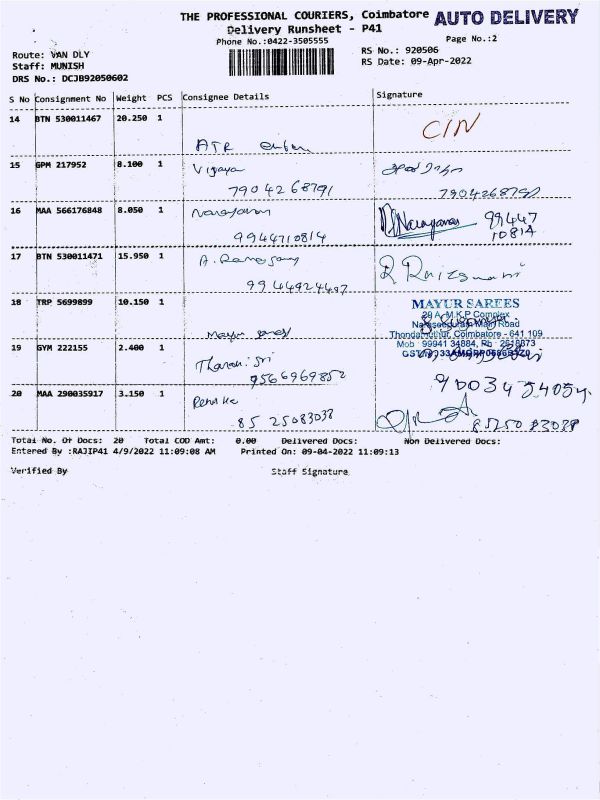 THE PROFESSIONAL COURIERS, Coimbatore AUTO DELIVERY
Delivery Runsheet - P41
Phone No.:0422-3505555
Page No.:2
Route: VAN DLY
RS No.: 920506
Staff: MUNISH
RS Date: 09-Apr-2022
DRS No.: DCJB92050602
S No Consignment No Weight PCS Consignee Details Signature
14 BTN 530011467 20.250 1
ATR
CIN
15 GPM 217952 8.100 1 Vijaya
7904268791
16 MAA 566176848 8.050 1 Narayanan
9944710814
D Narayanan 99447
10814
17 BTN 530011471 15.950 1
9944924497
18 TRP 5699899 10.150 1
Mayur
MAYUR SAREES
20 A, M.K.P Complex
Main Road
Coimbatore - 641 109
Mob : 99941 34884, Ph : 2618873
19 GYM 222155 2.400 1
Tharani Sri
9566969852
20 MAA 290035917 3.150 1
85 25083038
85250 83038
Total No. Of Docs: 20 Total COD Amt: 0.00 Delivered Docs: Non Delivered Docs:
Entered By :RAJIP41 4/9/2022 11:09:08 AM Printed On: 09-04-2022 11:09:13
Verified By Staff Signature